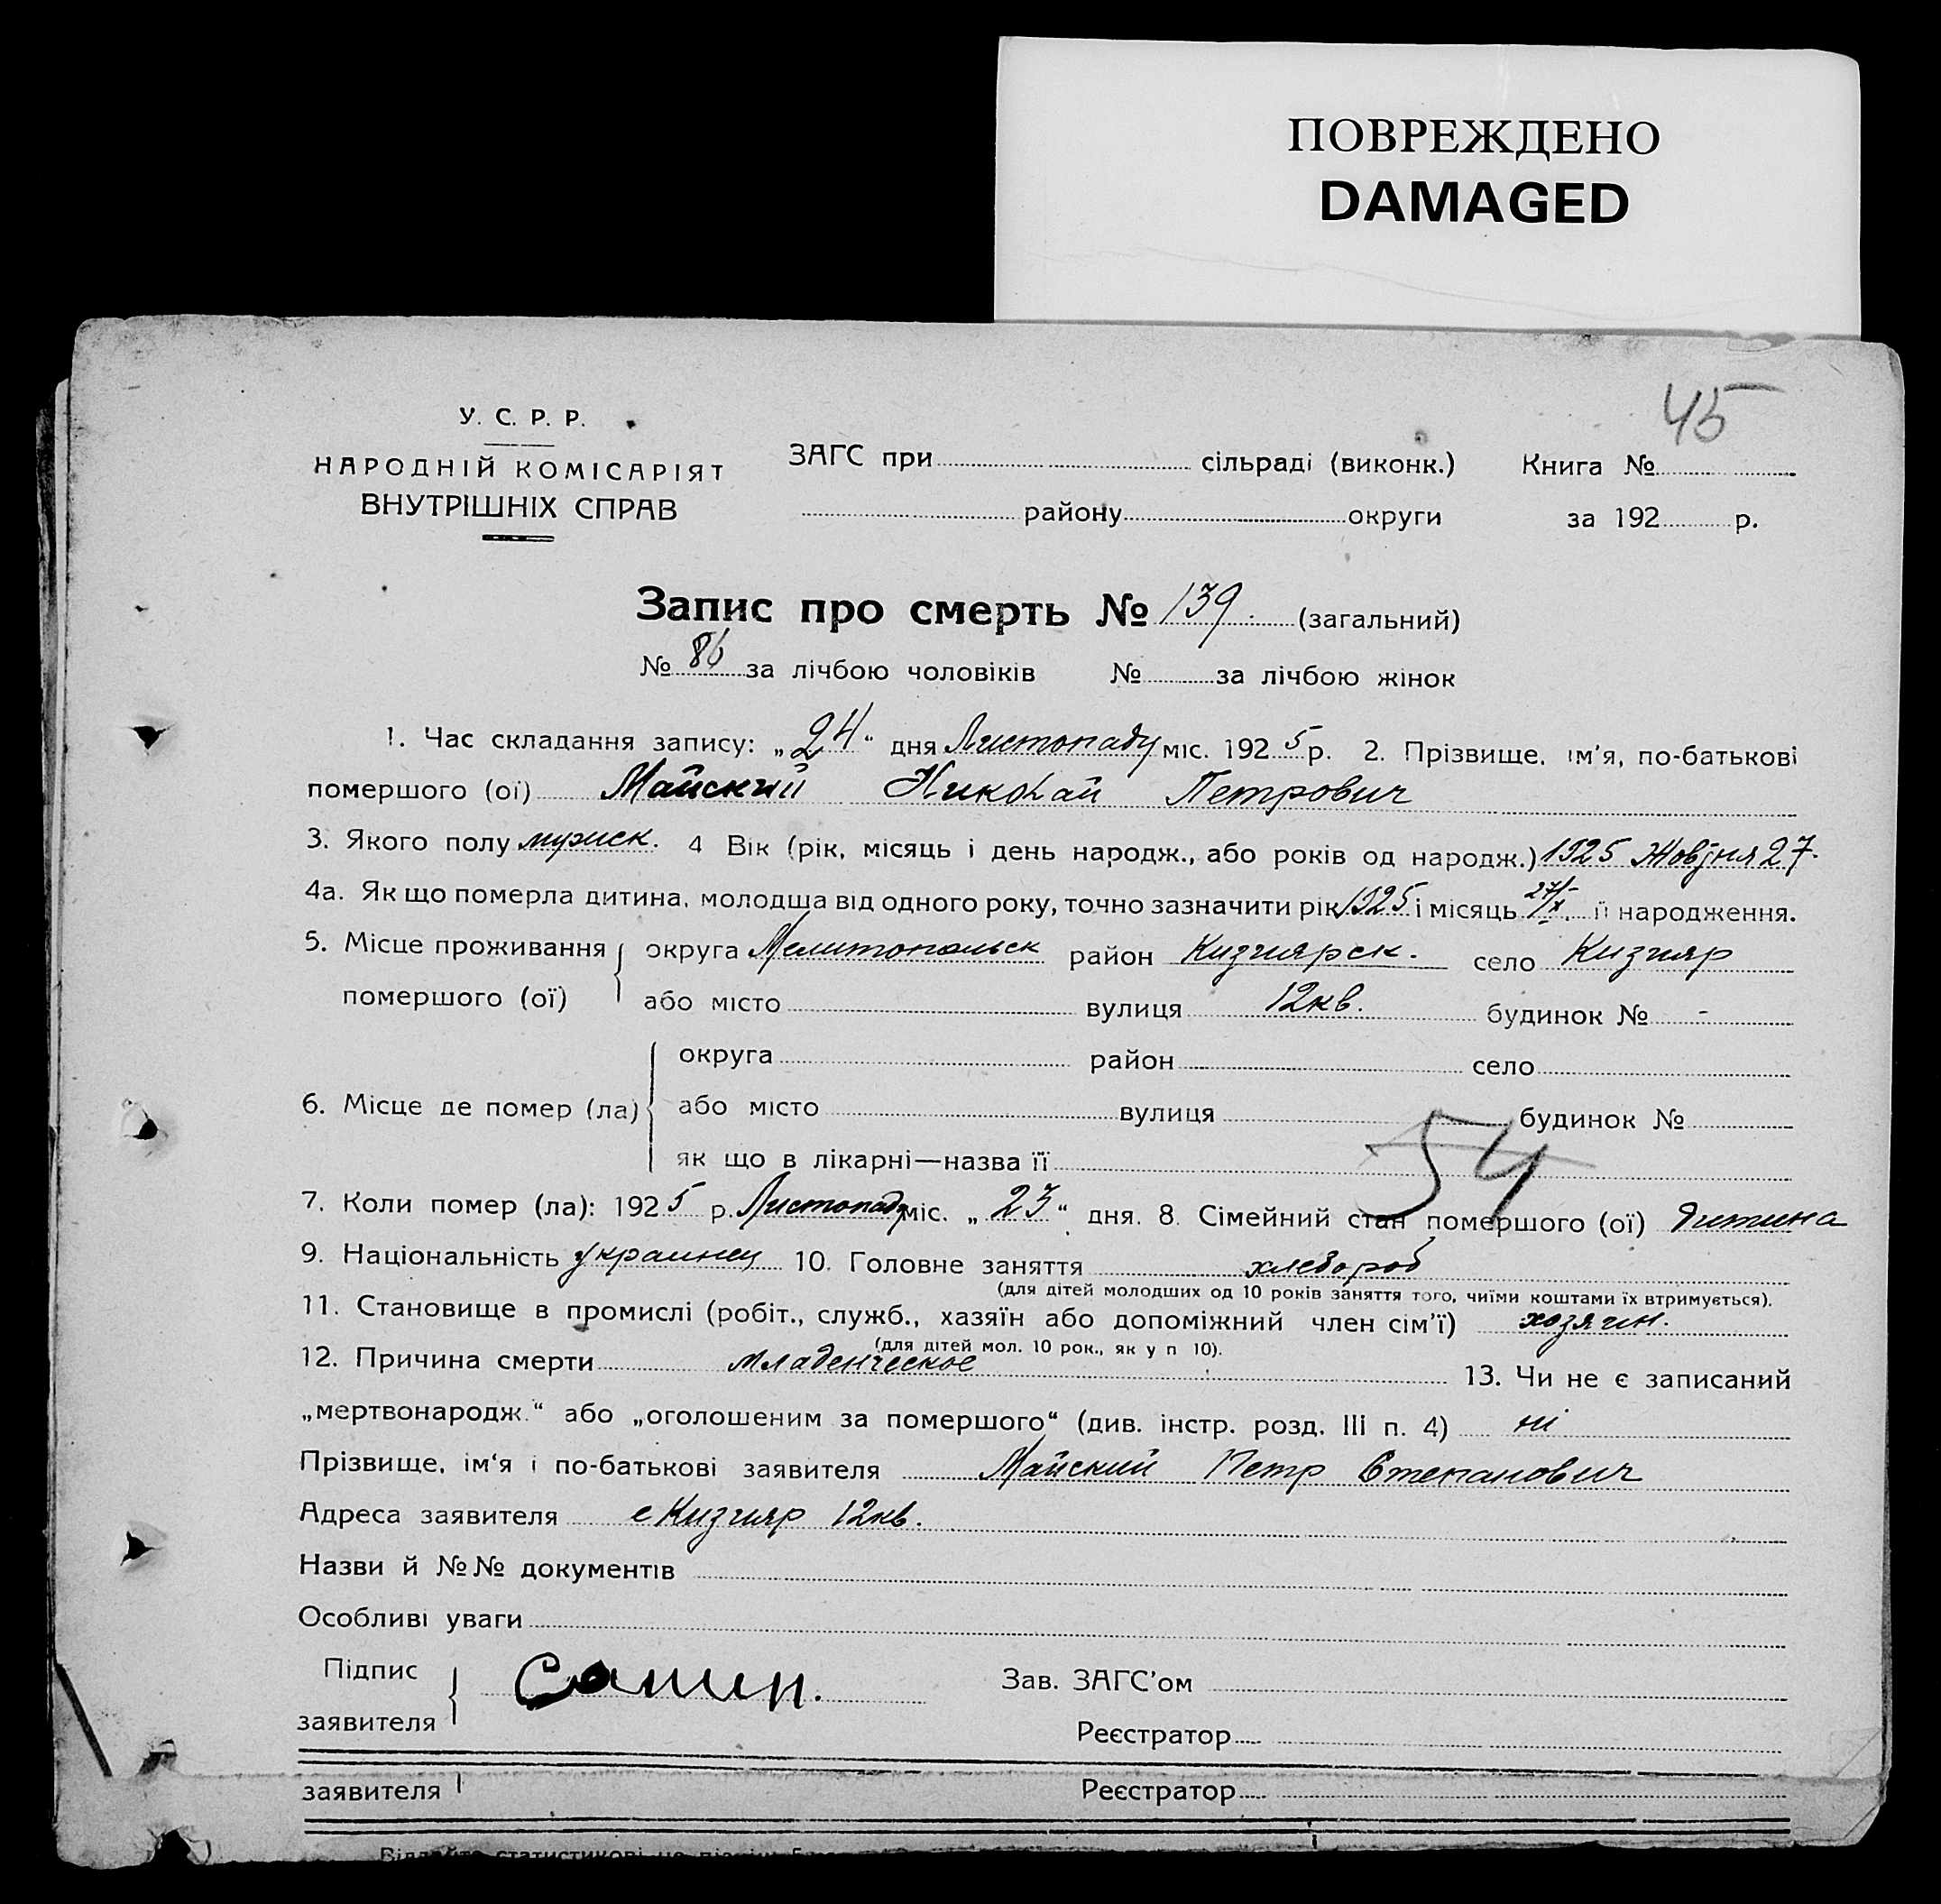 ПОВРЕЖДЕНО
DAMAGED
45
У. С. Р. Р.
НАРОДНІЙ КОМІСАРІЯТ
ВНУТРІШНІХ СПРАВ
ЗАГС при сільраді (виконк.) Книга №
району округи за 192 р.
Запис про смерть № 139. (загальний)
№ 86 за лічбою чоловіків № за лічбою жінок
1. Час складання запису: „24“ дня Листопаду міс. 1925 р. 2. Прізвище, ім'я, по-батькові
помершого (ої) Майский Николай Петрович
3. Якого полу мужск. 4 Вік (рік, місяць і день народж., або років од народж.) 1925 Жовтня 27.
4а. Як що померла дитина, молодша від одного року, точно зазначити рік 1925 і місяць 27/X. її народження.
5. Місце проживання округа Мелитопольск район Кизиярск. село Кизияр
помершого (ої) або місто вулиця 12кв. будинок № -
округа район село
6. Місце де помер (ла) або місто вулиця будинок №
як що в лікарні—назва її
54
7. Коли помер (ла): 1925 р. Листопаду міс. „23“ дня. 8. Сімейний стан помершого (ої) дитина
9. Національність украинец 10. Головне заняття хлебороб
(для дітей молодших од 10 років заняття того, чиїми коштами їх втримується).
11. Становище в промислі (робіт., служб., хазяїн або допоміжний член сім'ї) хозяин.
(для дітей мол. 10 рок., як у п 10).
12. Причина смерти младенческое 13. Чи не є записаний
„мертвонародж.“ або „оголошеним за помершого“ (див. інстр. розд. III п. 4) ні
Прізвище, ім'я і по-батькові заявителя Майский Петр Степанович
Адреса заявителя с Кизияр 12кв.
Назви й №№ документів
Особливі уваги
Підпис
заявителя
Зав. ЗАГС'ом
Реєстратор
заявителя Реєстратор